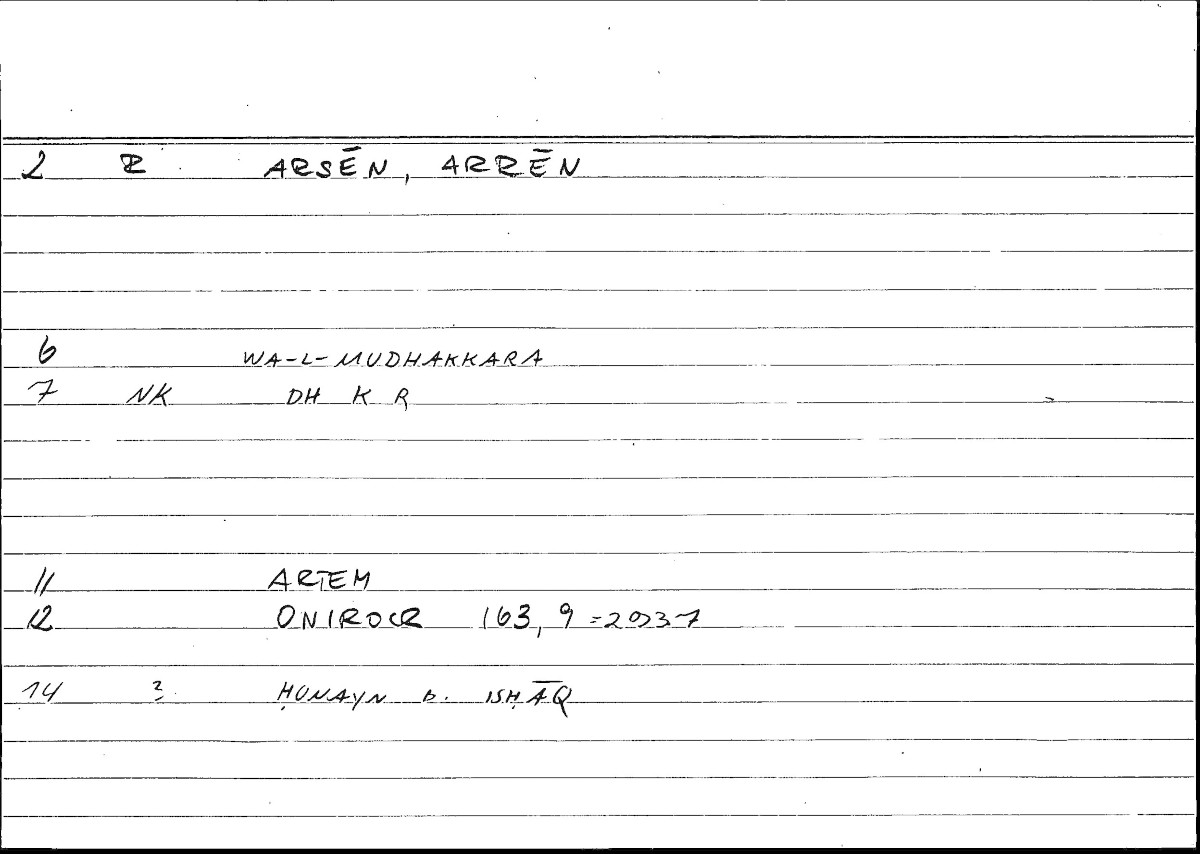 2 ARSĒN, ARRĒN
6 WA-L-MUDHAKKARA
7 NK DH K R
11 ARTEM
12 ONIROCR 163, 9
14 ? ḤUNAYN B. ISḤĀQ